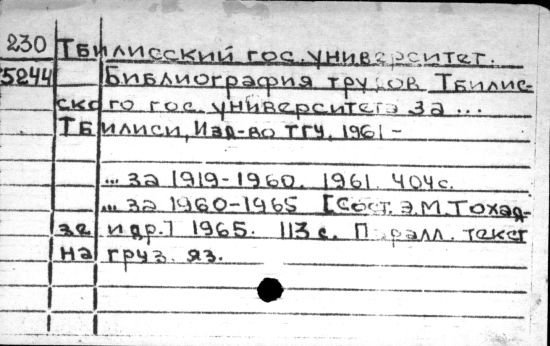 230 Тбилисский гос. университет.
5244 Библиография трудов Тбилис-
ского гос. университета за ...
Тбилиси, Изд-во ТГУ, 1961 -
... за 1919-1960. 1961. 404 с.
... за 1960-1965 [Сост. Э.М. Тохад-
зе и др.] 1965. 113 с. Паралл. текст
на груз. яз.